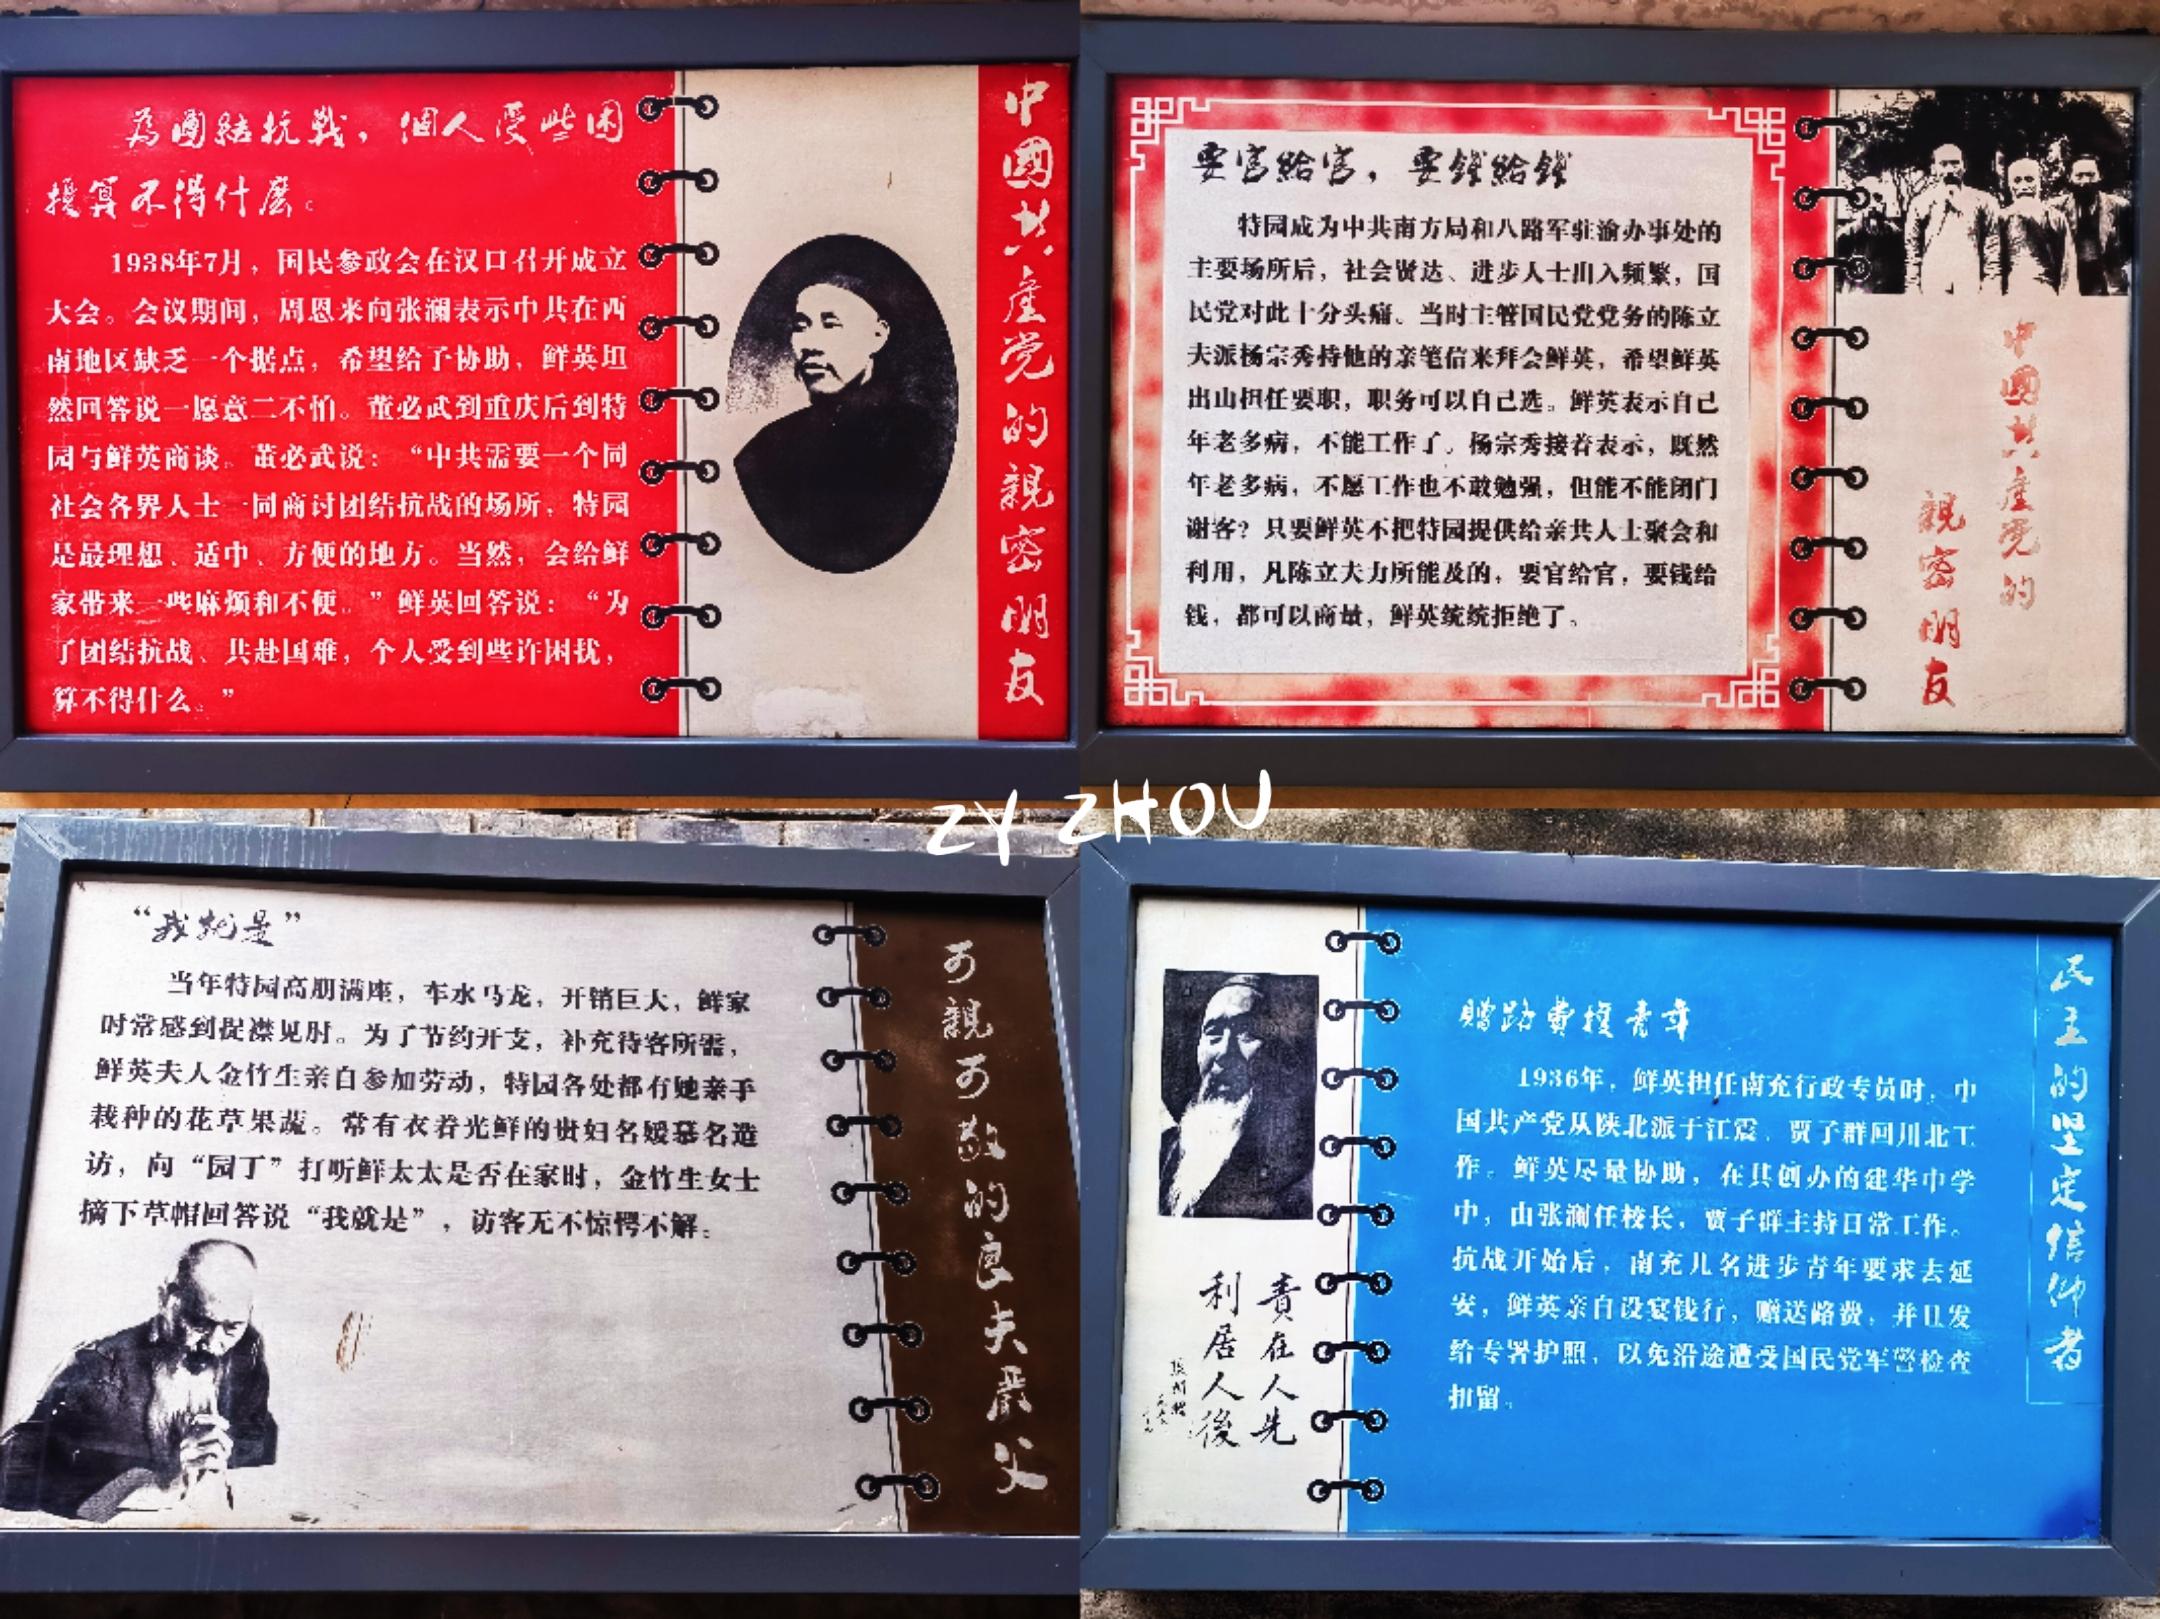 為團結抗戰，個人受些困
擾算不得什麼。
1938年7月，国民参政会在汉口召开成立
大会。会议期间，周恩来向张澜表示中共在西
南地区缺乏一个据点，希望给予协助，鲜英坦
然回答说一愿意二不怕。董必武到重庆后到特
园与鲜英商谈。董必武说：“中共需要一个同
社会各界人士一同商讨团结抗战的场所，特园
是最理想、适中、方便的地方。当然，会给鲜
家带来一些麻烦和不便。”鲜英回答说：“为
了团结抗战、共赴国难，个人受到些许困扰，
算不得什么。”
中國共產党的親密朋友
要官給官，要錢給錢
特园成为中共南方局和八路军驻渝办事处的
主要场所后，社会贤达、进步人士出入频繁，国
民党对此十分头痛。当时主管国民党党务的陈立
夫派杨宗秀持他的亲笔信来拜会鲜英，希望鲜英
出山担任要职，职务可以自己选。鲜英表示自己
年老多病，不能工作了。杨宗秀接着表示，既然
年老多病，不愿工作也不敢勉强，但能不能闭门
谢客？只要鲜英不把特园提供给亲共人士聚会和
利用，凡陈立夫力所能及的，要官给官，要钱给
钱，都可以商量，鲜英统统拒绝了。
中國共產党的
親密朋友
ZY ZHOU
“我就是”
当年特园高朋满座，车水马龙，开销巨大，鲜家
时常感到捉襟见肘。为了节约开支，补充待客所需，
鲜英夫人金竹生亲自参加劳动，特园各处都有她亲手
栽种的花草果蔬。常有衣着光鲜的贵妇名媛慕名造
访，向“园丁”打听鲜太太是否在家时，金竹生女士
摘下草帽回答说“我就是”，访客无不惊愕不解。
可親可敬的良夫嚴父
責在人先
利居人後
贈路費援青年
1936年，鲜英担任南充行政专员时，中
国共产党从陕北派于江震、贾子群回川北工
作。鲜英尽量协助，在其创办的建华中学
中，由张澜任校长，贾子群主持日常工作。
抗战开始后，南充几名进步青年要求去延
安，鲜英亲自设宴饯行，赠送路费，并且发
给专署护照，以免沿途遭受国民党军警检查
扣留。
民主的坚定信仰者